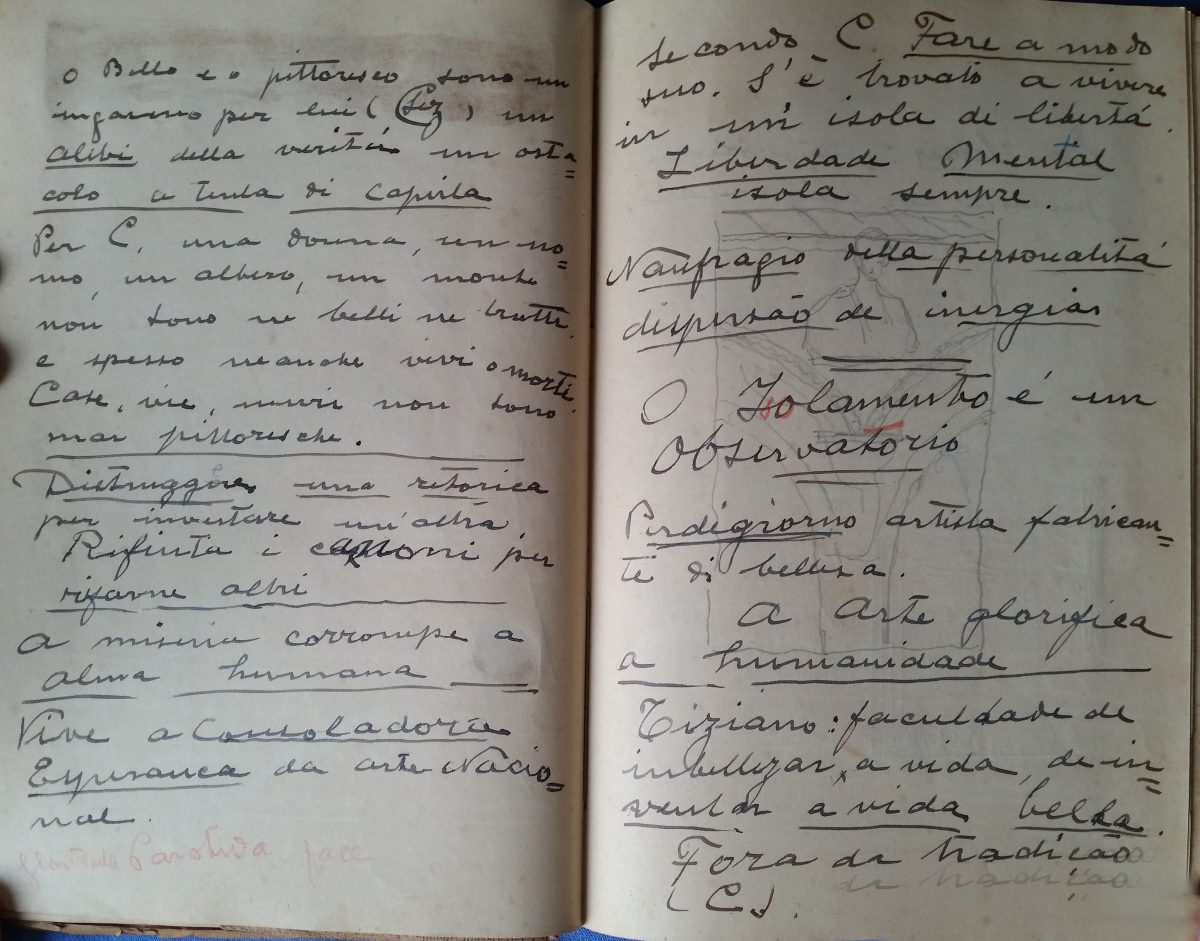 O Bello e o pittoresco sono un
inganno per lui ( ) un
alibi della veritá un osta=
colo a tenta di capirla
Per C. una donna, un uo=
mo, un albero, un monte
non sono ne belli ne brutti,
e spesso neanche vivi o morti.
Case, vie, muri non sono
mai pittoresche.
Distruggere una retorica
per inventare un'altra.
Rifiuta i canoni per
rifarne altri
a miseria corrompe a
alma humana
Vive a Consoladora
Esperanca da arte Nacio=
nal.
glandula Parotida face
secondo C. Fare a modo
suo. S'è trovato a vivere
in un'isola di libertá.
Liberdade Mental
isola sempre.
Naufragio della personalitá
dispersão de inergias
O Isolamento é um
Observatorio
Perdigiorno artista fabrican=
te di belleza.
a arte glorifica
a humanidade
Tiziano: faculdade de
inbellezar a vida, de in=
ventar a vida bella.
Fora da tradição
da tradição
(C.).